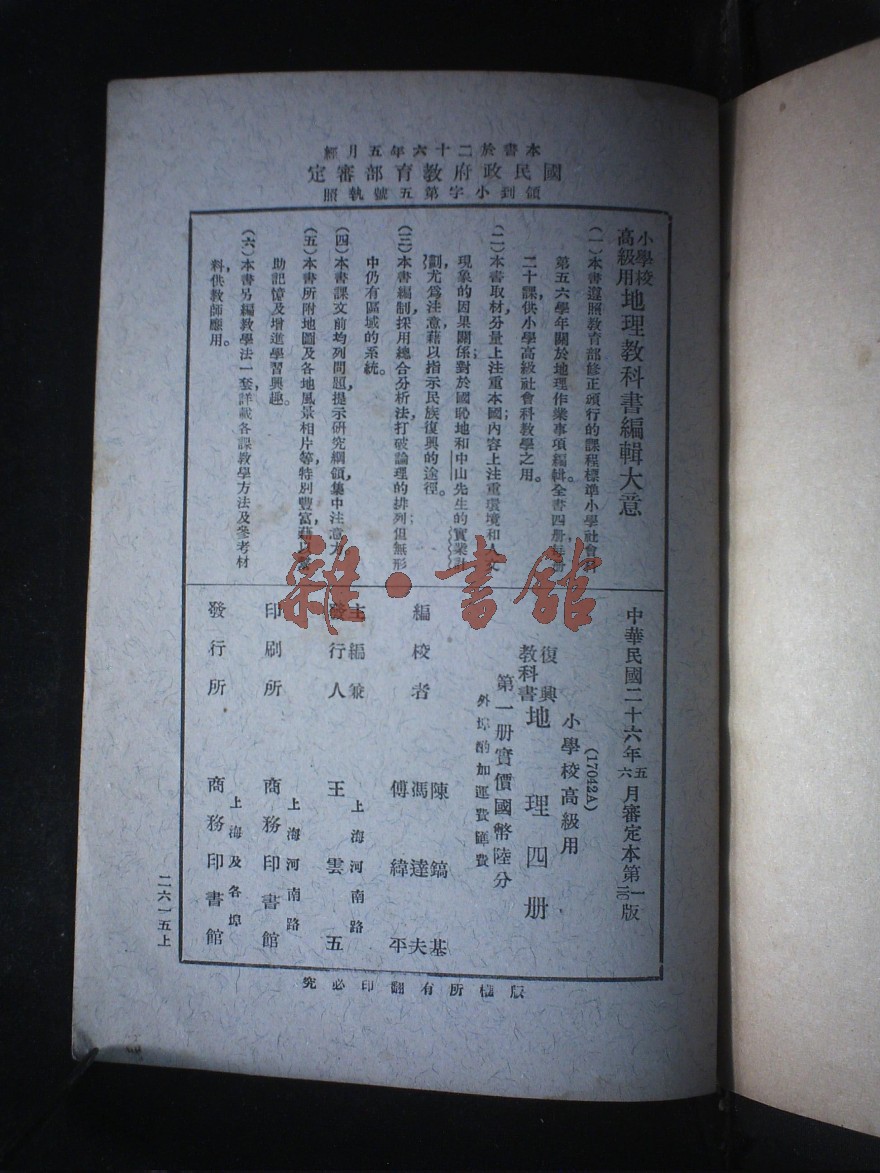 本書於二十六年五月經
國民政府教育部審定
領到小字第五號執照
小學校
高級用
地理教科書編輯大意
(一)本書遵照教育部修正頒行的課程標準小學社會科
第五六學年關於地理作業事項編輯。全書四册,每册
二十課,供小學高級社會科教學之用。
(二)本書取材分量上注重本國;內容上注重環境和人文
現象的因果關係;對於國恥地和中山先生的實業計
劃,尤爲注意,藉以指示民族復興的途徑。
(三)本書編制採用總合分析法,打破論理的排列;但無形
中仍有區域的系統。
(四)本書課文前均列問題,提示研究綱領,集中注意力。
(五)本書所附地圖及各地風景相片等,特別豐富,藉以
助記憶及增進學習興趣。
(六)本書另編教學法一套,詳載各課教學方法及參考材
料,供教師應用。
中華民國二十六年五六月審定本第一版
(17042A)
小學校高級用
復興
教科書
地理四册
第一册實價國幣陸分
外埠酌加運費匯費
編校者
陳鎬基
馮達夫
傅緯平
主編兼
發行人
上海河南路
王雲五
印刷所
上海河南路
商務印書館
發行所
上海及各埠
商務印書館
版權所有翻印必究
二六一五上
雜·書館